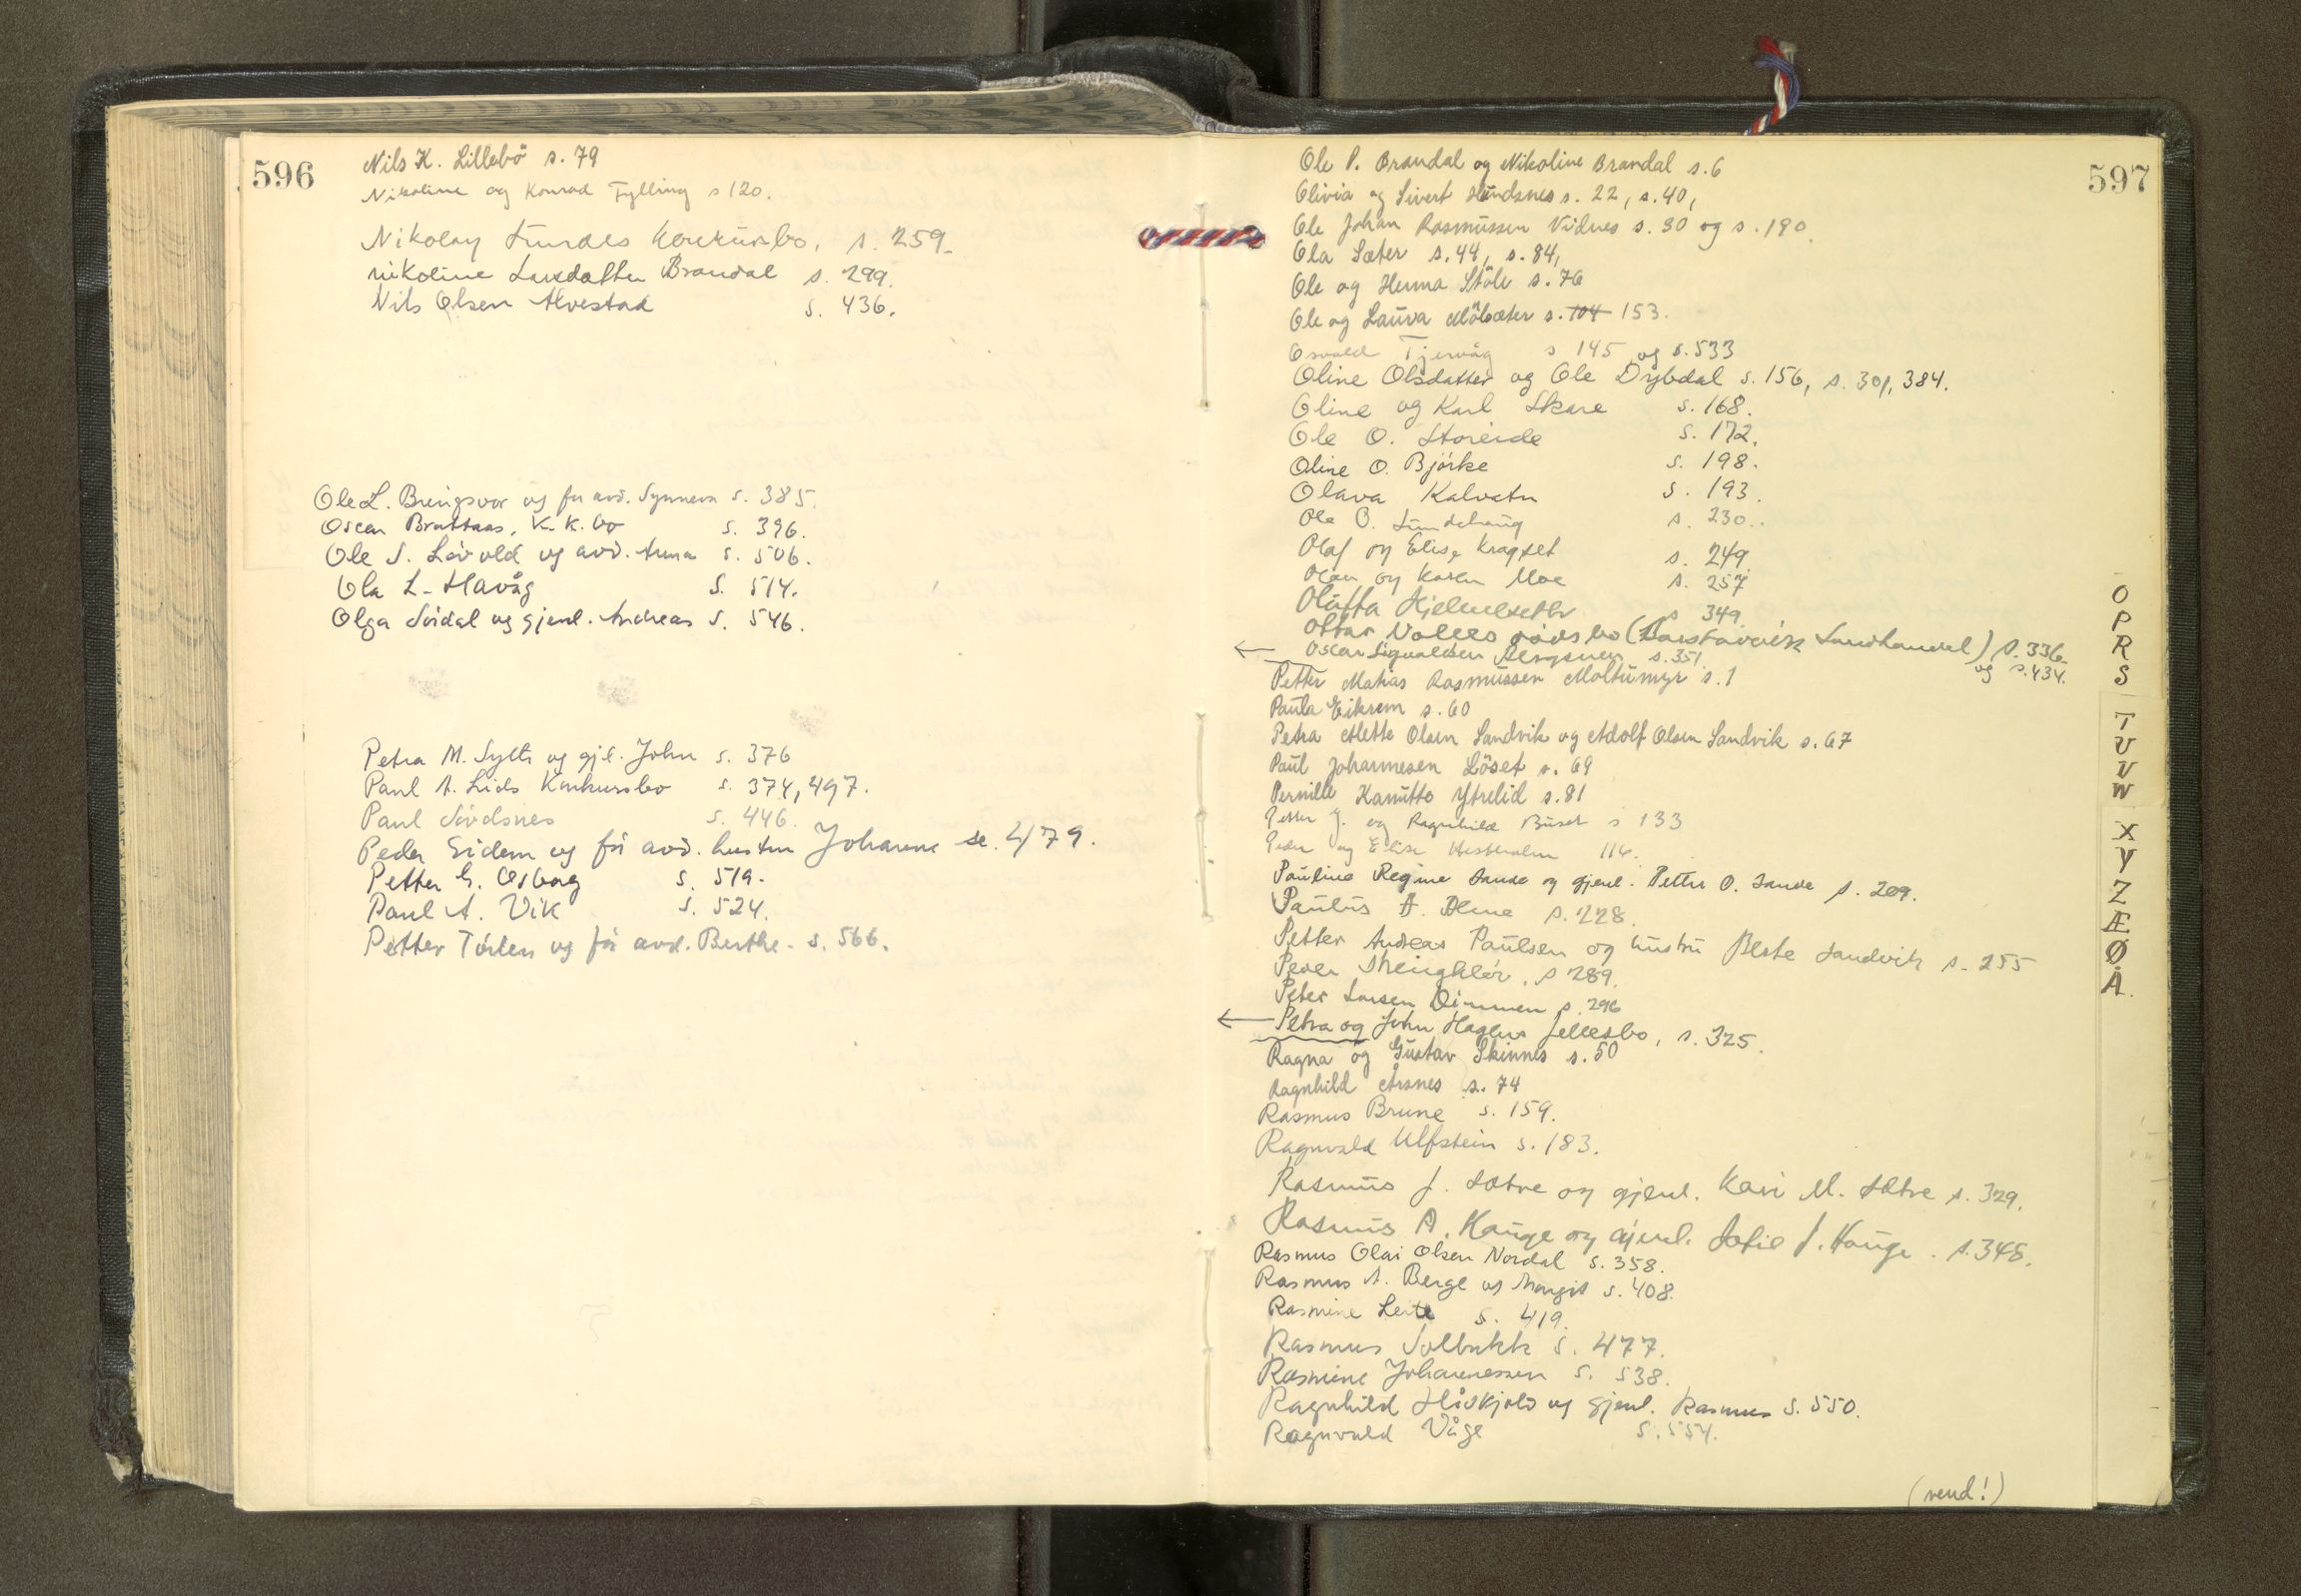 596
Nils K. Lillebö s. 79
Nikoline og Konrad Tylling s 120.
Nikolay Lundes konkursbo, s. 259.
Nikoline Larsdatter Brandal s. 299.
Nils Olsen Alvestad s. 436.
Ole L. Bringsvor og fru avd. Synneva s. 385.
Oscar Brattaas, K.K.bo s. 396.
Ole S. Løvold og avd. Anna s. 506.
Ola L. Havåg s. 514.
Olga Sørdal og gjenl. Andreas s. 546.
Petra M. Sylte og gjl. John s. 376
Paul A. Lids Konkursbo s. 374, 497.
Paul Sørdsnes s. 446.
Peder Eidem og frå avd. hustru Johanna se. 479.
Petter G. Osborg s. 519.
Paul A. Vik s. 524.
Petter Tørlen og frå avd. Berthe. s. 566.
597
Ole P. Brandal og Nikoline Brandal s. 6
Olivia og Sivert Hundsnes s. 22, s. 40,
Ole Johan Rasmussen Vidnes s. 30 og s. 190.
Ola Sæter s. 44, s. 84,
Ole og Herma Støle s. 76
Ole og Laura Mölsæter s. 104 153.
Osvald Tjervåg s 145 og s. 533
Oline Olsdatter og Ole Dybdal s. 156, s. 301, 384.
Oline og Karl Skare s. 168.
Ole O. Storeide s. 172.
Oline O. Björke s. 198.
Olava Kalvatn s. 193.
Ole O. Lundehaug s. 230.
Olaf og Elise Kragset s. 249.
og Karen Moe s. 257
Oluffa Hjelmeseth s 349.
Ottar Nolles (Landhandel) s. 336.
Oscar Sigvaldsen s. 351 og s. 434.
Petter Matias Rasmussen Moltumyr s. 1
Paula Eikrem s. 60
Petra Alette Olsen Sandvik og Adolf Olsen Sandvik s. 67
Paul Johannesen Löset s. 69
Pernille Kanutte Ytrelid s. 81
Petter J. og Ragnhild Buset s 133
Peder og Elise Hestholm 116.
Pauline Regine Sande og gjenl. Petter O. Sande s. 209.
Paulus A. Alme s. 228.
Petter Andreas Paulsen og hustru Berte Sandvik s. 255
Peder s 289.
Peter Larsen Dimmen s. 296
Petra og John Hagens fellesbo, s. 325.
Ragna og Gustav Skinnes s. 50
Ragnhild Årsnes s. 74
Rasmus Brune s. 159.
Ragnvald Ulfstein s. 183.
Rasmus J. Sætre og gjenl. Kari M. Sætre s. 329.
Rasmus A. Hauge og gjenl. Sofie J. Hauge. s. 348.
Rasmus Olai Olsen Nordal s. 358.
Rasmus A. Berge og Margit s. 408.
Rasmine Leite s. 419.
Rasmus Solbakk s. 477.
Rasmine Johannessen s. 538.
Ragnhild Håskjold og gjenl. Rasmus s. 550.
Ragnvald Våge s. 554.
(vend!)
O
P
R
S
T
U
V
W
X
Y
Z
Æ
Ø
Å